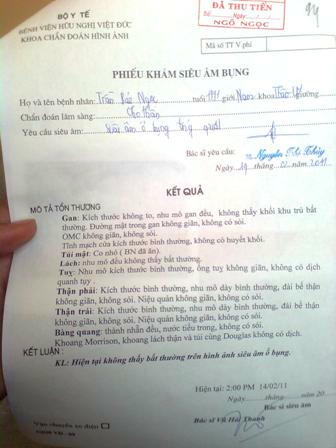 BỘ Y TẾ
BỆNH VIỆN HỮU NGHỊ VIỆT ĐỨC
KHOA CHẨN ĐOÁN HÌNH ẢNH
ĐÃ THU TIỀN
Số Ngày
NGÔ NGỌC
Mã số TT V.phí
PHIẾU KHÁM SIÊU ÂM BỤNG
Họ và tên bệnh nhân: Trần Bảo Ngọc tuổi 1991 giới Nam khoa
Chẩn đoán lâm sàng:
Yêu cầu siêu âm: Siêu âm ổ bụng tổng quát
Bác sĩ yêu cầu:
Ngày 14 tháng 02 năm 2011
KẾT QUẢ
MÔ TẢ TỔN THƯƠNG
Gan: Kích thước không to, nhu mô gan đều, không thấy khối khu trú bất
thường. Đường mật trong gan không giãn, không có sỏi.
OMC không giãn, không sỏi.
Tĩnh mạch cửa kích thước bình thường, không có huyết khối.
Túi mật: Co nhỏ ( BN đã ăn).
Lách: nhu mô đều không thấy bất thường.
Tuỵ: Nhu mô kích thước bình thường, ống tuỵ không giãn, không có dịch
quanh tụy .
Thận phải: Kích thước bình thường, nhu mô dày bình thường, đài bể thận
không giãn, không sỏi. Niệu quản không giãn, không có sỏi.
Thận trái: Kích thước bình thường, nhu mô dày bình thường, đài bể thận
không giãn, không sỏi. Niệu quản không giãn, không có sỏi.
Bàng quang: thành nhẵn đều, nước tiểu trong, không có sỏi.
Khoang Morrison, khoang lách thận và túi cùng Douglas không có dịch.
KẾT LUẬN :
KL: Hiện tại không thấy bất thường trên hình ảnh siêu âm ổ bụng.
Hiện tại: 2:00 PM 14/02/11
Ngày tháng năm 20
Bác sĩ siêu âm
Bác sĩ Vũ Hải Thanh